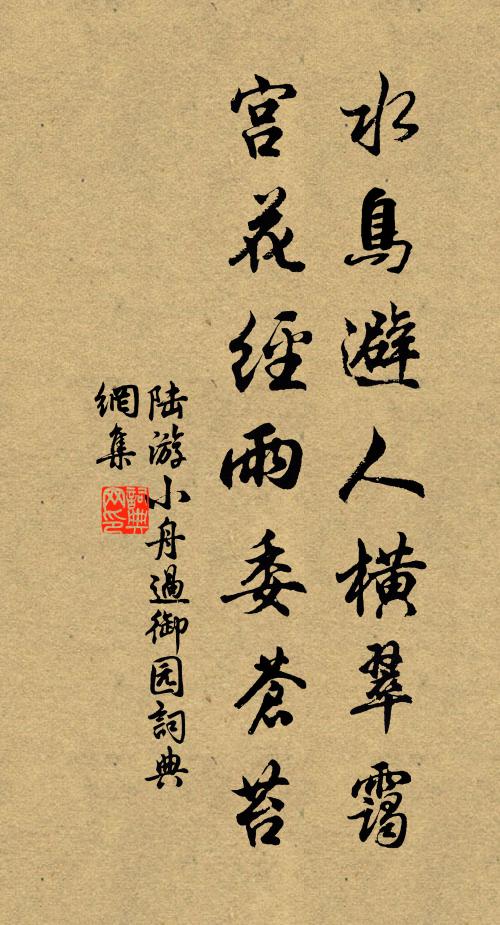 水鳥避人橫翠靄
宮花經雨委蒼苔
陆游小舟過御园詞典
網集
詞典
网印